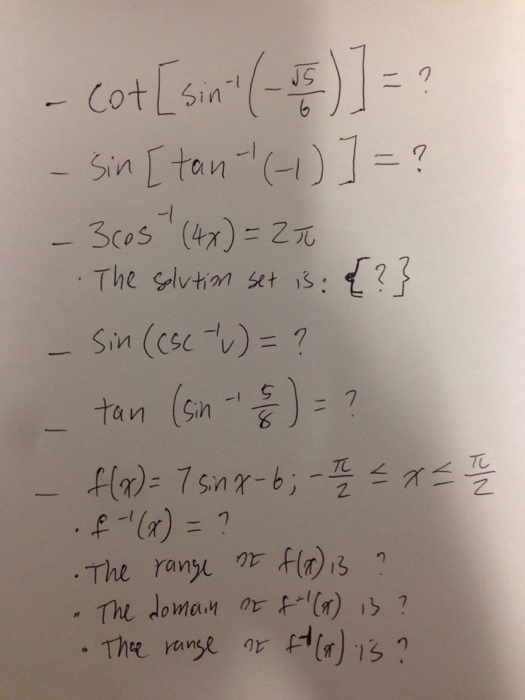 - cot[sin⁻¹(-√5/6)] = ?
- sin[tan⁻¹(-1)] = ?
- 3cos⁻¹(4x) = 2π
· The solution set is: {?}
- sin(csc⁻¹v) = ?
- tan(sin⁻¹ 5/8) = ?
- f(x) = 7sinx-6; -π/2 ≤ x ≤ π/2
· f⁻¹(x) = ?
· The range of f(x) is ?
· The domain of f⁻¹(x) is ?
· The range of f⁻¹(x) is ?